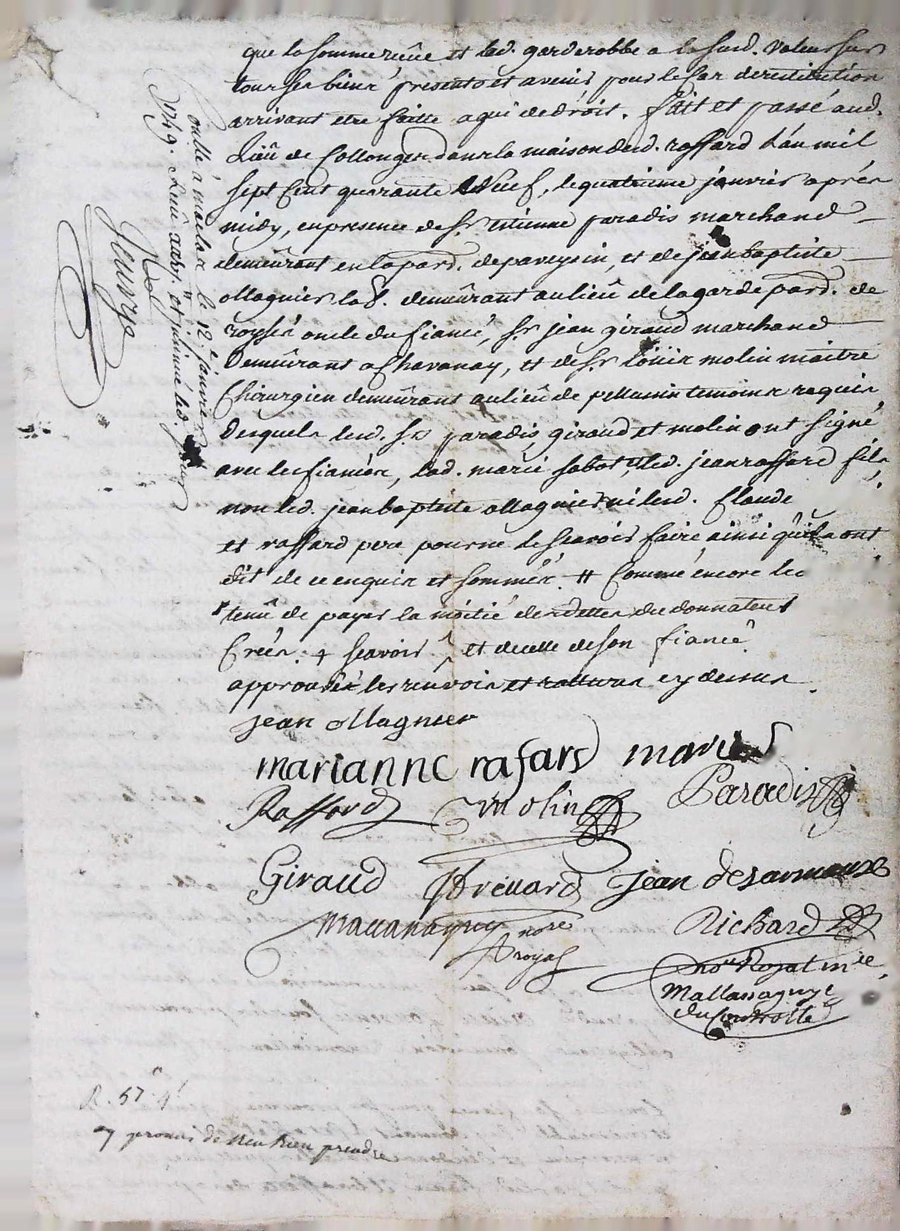 que la somme reçüe et lad. garderobbe a la susd. valeur sur
tous ses biens presents et avenir, pour le cas de restitution
arrivant etre faitte a qui de droit. fait et passé aud.
Lieu de Collonges dans la maison dud. raffard L'an mil
sept cent quarante Neuf, le quatrieme janvier après
midy, en presence de sr. etienne paradis marchand
demeurant en la par. de paveysin, et de jean baptiste
ollagnier demeurant au lieu de la garde par. de
roysié oncle du fiancé, sr. jean giraud marchand
Demeurant a Chavanay, et de sr. louis molin maitre
Chirurgien demeurant au lieu de pellussin temoins requis
Desquels lesd. srs paradis giraud et molin ont signé
avec les fiancés, lad. marie sabot, led. jean raffard fils
non led. jean baptiste ollagnier ni lesd. Claude
et raffard pere pour ne le scavoir faire ainsi qu'ils ont
dit de ce enquis et sommés. # Comme encore
tenû de payer la moitié des dettes du donnateur
Créés. + scavoir et de celle de son fiancé
approuvés les renvois et ratures cy dessus.
jean ollagnier
marianne rafard marie
Raffard molin Paradis
Giraud Jean desormeaux
nore Richard
royal
nore Royal
Mallassagny
du Controlle
Conllé à malas le 12e janvier
1749. Reçu
R. 57
promis de n'en rien prendre